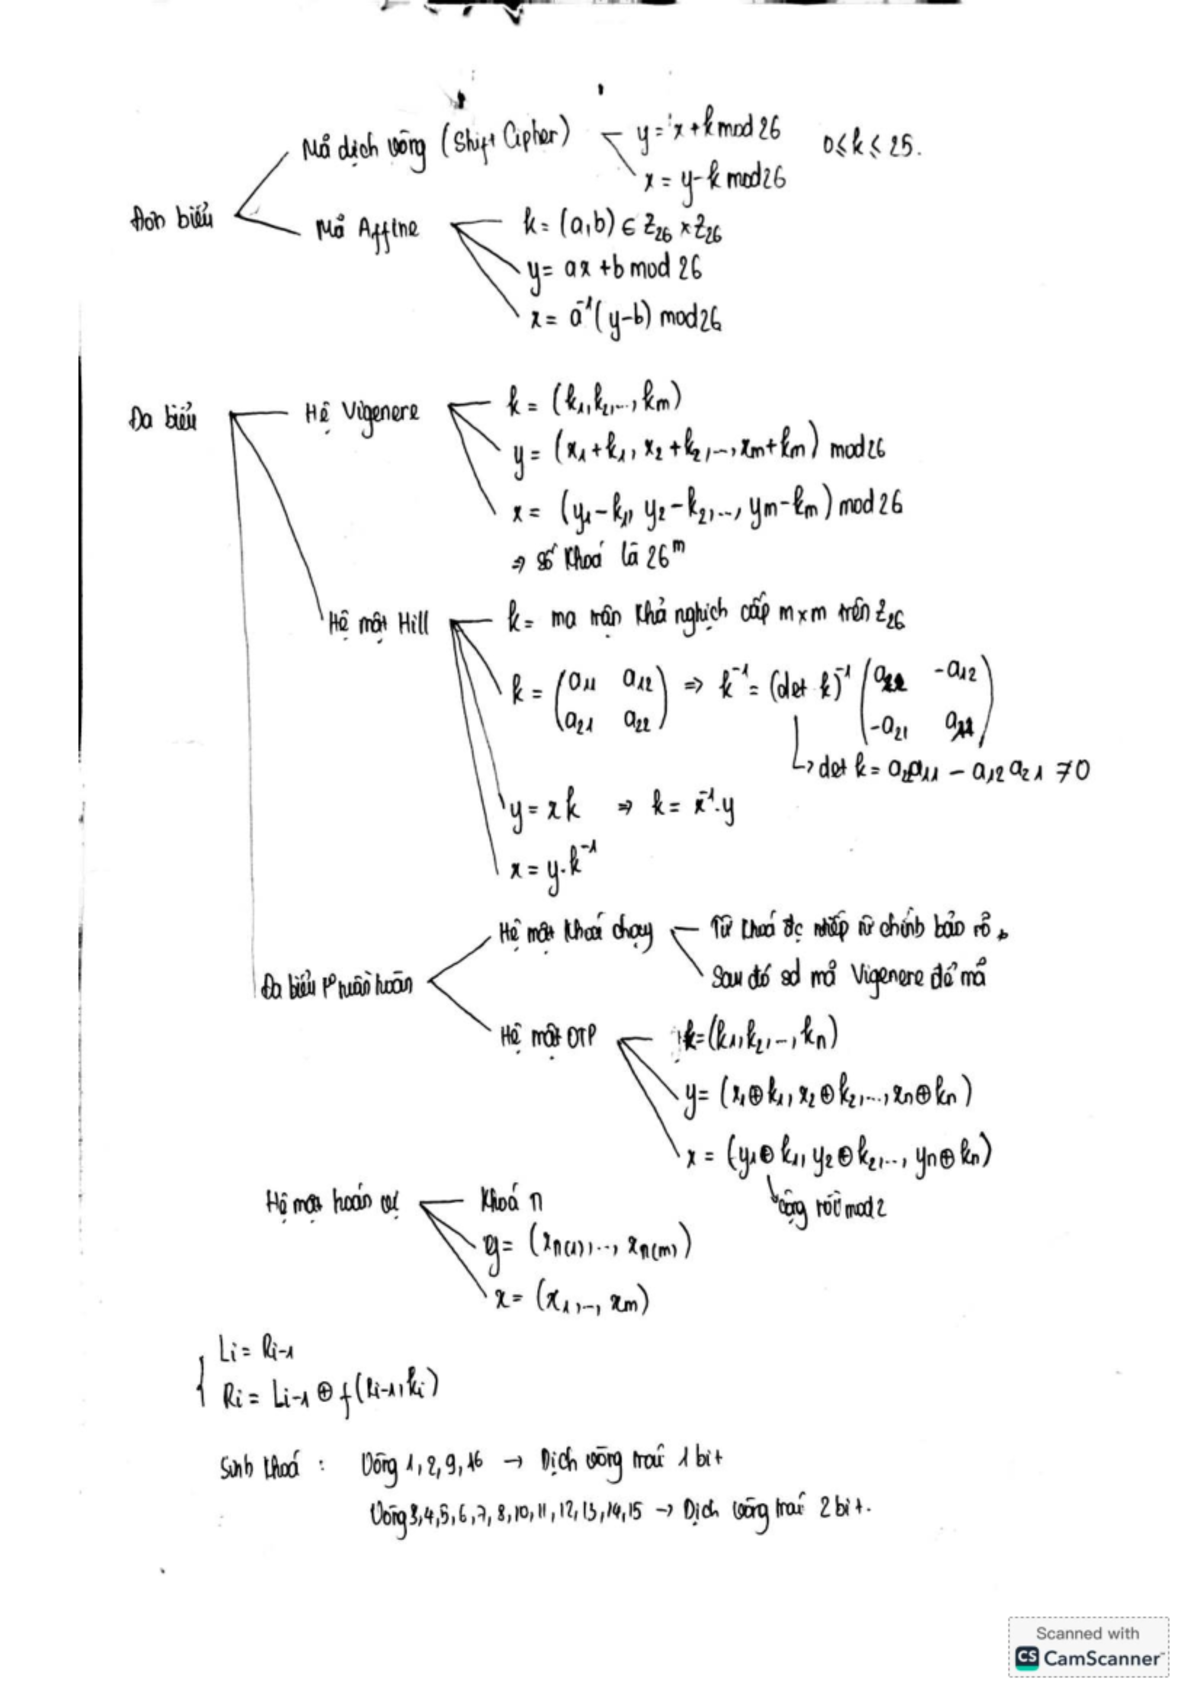 Mã dịch vòng (Shift Cipher) y = x + k mod 26 0 ≤ k ≤ 25.
x = y - k mod 26
Đơn biểu
Mã Affine k = (a,b) ∈ Z26 × Z26
y = ax + b mod 26
x = a⁻¹(y-b) mod 26
Đa biểu Hệ Vigenere k = (k1, k2, ..., km)
y = (x1+k1, x2+k2, ..., xm+km) mod 26
x = (y1-k1, y2-k2, ..., ym-km) mod 26
⇒ số khoá là 26^m
Hệ mật Hill k = ma trận khả nghịch cấp m×m trên Z26
k = (a11 a12 ⇒ k⁻¹ = (det k)⁻¹ (a22 -a12
a21 a22) -a21 a11)
↳ det k = a22a11 - a12a21 ≠ 0
y = xk ⇒ k = x⁻¹.y
x = y.k⁻¹
Hệ mật khoá chạy Từ khoá đc nhiếp từ chính bản rõ
Sau đó sd mã Vigenere để mã
Đa biểu tuần hoàn
Hệ mật OTP k = (k1, k2, ..., kn)
y = (x1⊕k1, x2⊕k2, ..., xn⊕kn)
x = (y1⊕k1, y2⊕k2, ..., yn⊕kn)
cộng rồi mod 2
Hệ mật hoán vị Khoá π
y = (xπ(1), ..., xπ(m))
x = (x1, ..., xm)
{ Li = Ri-1
Ri = Li-1 ⊕ f(Ri-1, ki)
Sinh khoá : Vòng 1, 2, 9, 16 → Dịch vòng trái 1 bit
Vòng 3, 4, 5, 6, 7, 8, 10, 11, 12, 13, 14, 15 → Dịch vòng trái 2 bit.
Scanned with
CS CamScanner